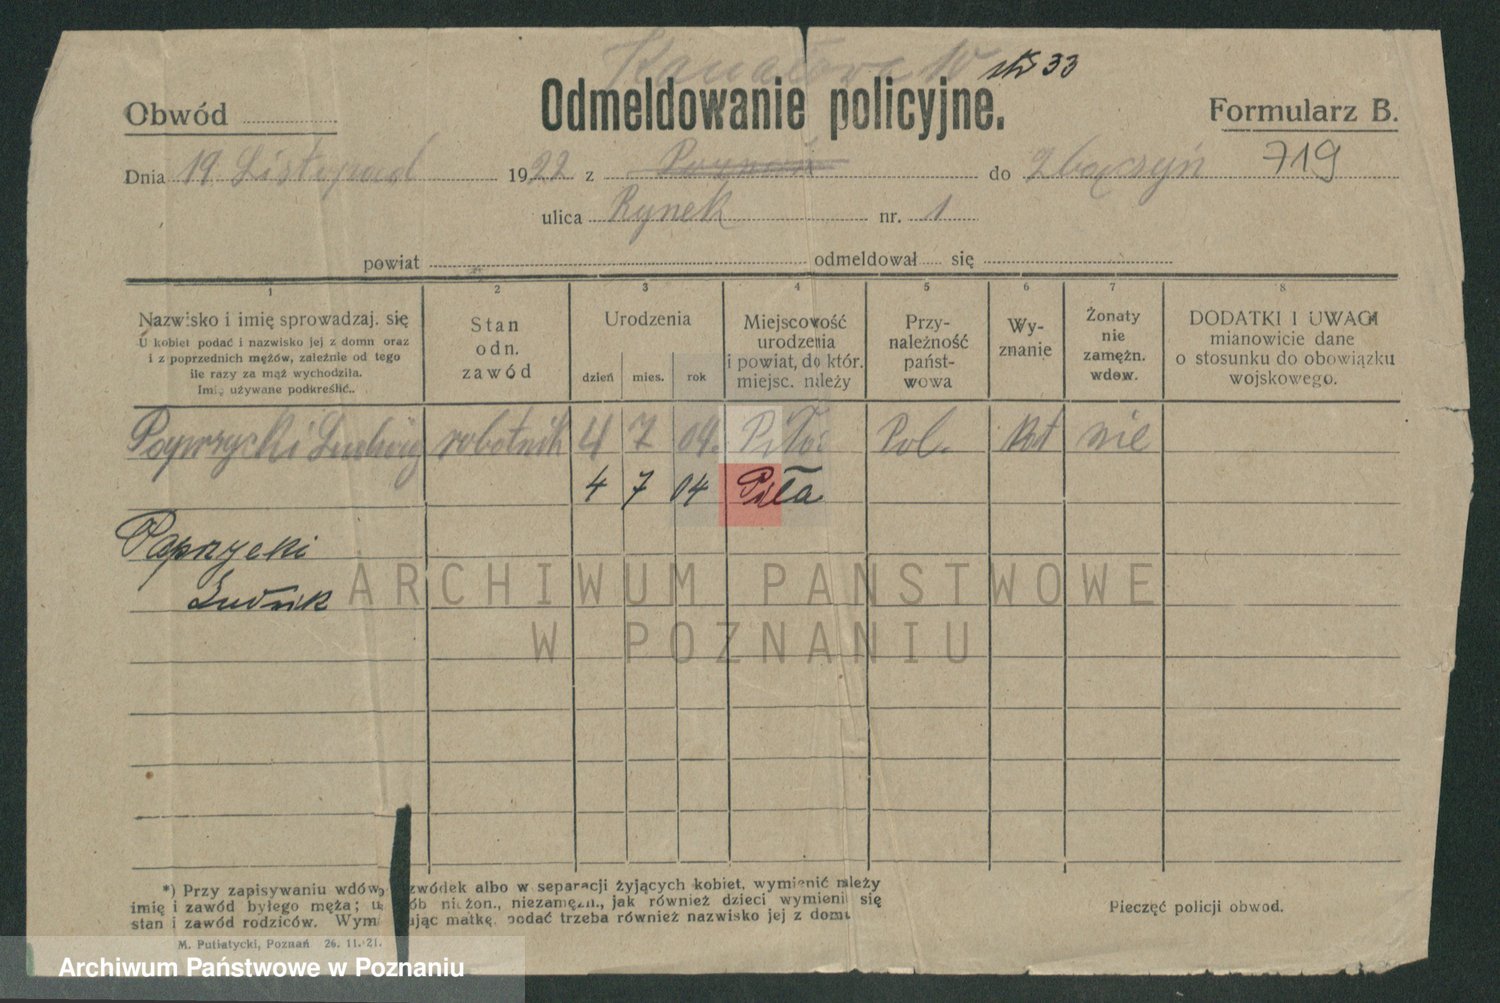 Kanałowa 10 str 33
Odmeldowanie policyjne.
Obwód
Formularz B.
Dnia 19 Listopad 1922 z Poznań do Zbąszyń 719
ulica Rynek nr. 1
powiat odmeldował się
1 2 3 4 5 6 7 8
Nazwisko i imię sprowadzaj. się
U kobiet podać i nazwisko jej z domn oraz
i z poprzednich mężów, zależnie od tego
ile razy za mąż wychodziła.
Imię używane podkreślić..
Stan
odn.
zawód
Urodzenia
dzień mies. rok
Miejscowość
urodzenia
i powiat, do któr.
miejsc. należy
Przy-
należność
państ-
wowa
Wy-
znanie
Żonaty
nie
zamężn.
wdow.
DODATKI I UWAGI
mianowicie dane
o stosunku do obowiązku
wojskowego.
Paprzycki Ludwig robotnik 4 7 04. Piła Pol. kat nie
4 7 04 Piła
Paprzycki
Ludwik
ARCHIWUM PAŃSTWOWE
W POZNANIU
*) Przy zapisywaniu wdów, zwódek albo w separacji żyjących kobiet, wymienić należy
imię i zawód byłego męża; u ób nieżon., niezamężn., jak również dzieci wymienić się
stan i zawód rodziców. Wym ując matkę, podać trzeba również nazwisko jej z domu
Pieczęć policji obwod.
M. Putiatycki, Poznań 26. 11. 21.
Archiwum Państwowe w Poznaniu